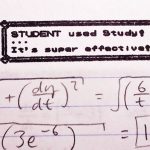 STUDENT used Study!
...
It's super effective!
+ (dy/dt)² = √(6
(3e⁻⁶)² = 1